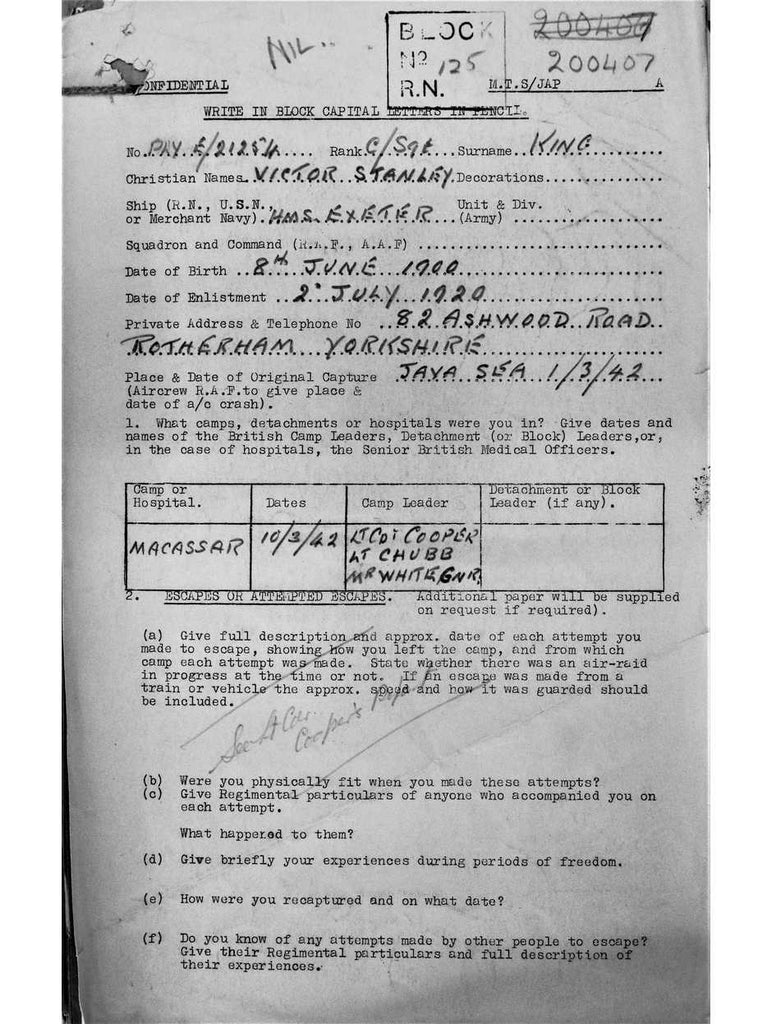 NIL..
BLOCK
Nº 125
R.N.
200407
200407
CONFIDENTIAL
M.T.S/JAP A
WRITE IN BLOCK CAPITAL LETTERS IN PENCIL.
No. .... Rank C/Sgt.. Surname.. KING..........
Christian Names. VICTOR STANLEY. Decorations...............
Ship (R.N., U.S.N., Unit & Div.
or Merchant Navy). HMS. EXETER (Army) ...................
Squadron and Command (R.A.F., A.A.F) ...............................
Date of Birth .. 8th JUNE 1900
Date of Enlistment .. 2 JULY 1920
Private Address & Telephone No .. 82 ASHWOOD ROAD..
ROTHERHAM YORKSHIRE.......................
Place & Date of Original Capture JAVA SEA 1/3/42...
(Aircrew R.A.F.to give place &
date of a/c crash).
1. What camps, detachments or hospitals were you in? Give dates and
names of the British Camp Leaders, Detachment (or Block) Leaders,or,
in the case of hospitals, the Senior British Medical Officers.
Camp or Hospital. Dates Camp Leader Detachment or Block Leader (if any).
MACASSAR 10/3/42 LT CDR COOPER
LT CHUBB
MR WHITE, GNR.
2. ESCAPES OR ATTEMPTED ESCAPES. Additional paper will be supplied
on request if required).
(a) Give full description and approx. date of each attempt you
made to escape, showing how you left the camp, and from which
camp each attempt was made. State whether there was an air-raid
in progress at the time or not. If an escape was made from a
train or vehicle the approx. speed and how it was guarded should
be included.
See Lt Cdr
Cooper's report
(b) Were you physically fit when you made these attempts?
(c) Give Regimental particulars of anyone who accompanied you on
each attempt.
What happened to them?
(d) Give briefly your experiences during periods of freedom.
(e) How were you recaptured and on what date?
(f) Do you know of any attempts made by other people to escape?
Give their Regimental particulars and full description of
their experiences.